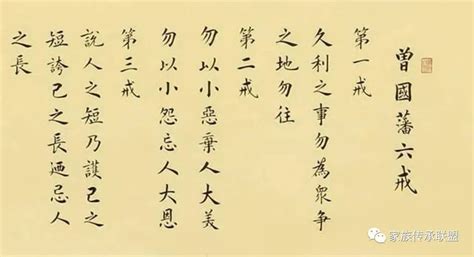 曾國藩六戒
第一戒
久利之事勿為衆争
之地勿往
第二戒
勿以小惡棄人大美
勿以小怨忘人大恩
第三戒
說人之短乃護己之
短誇己之長迺忌人
之長
家族传承联盟